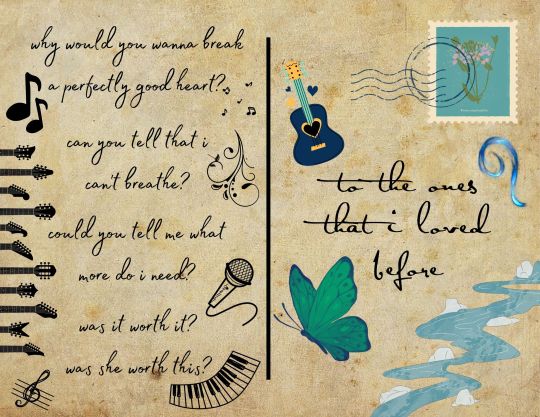 why would you wanna break
a perfectly good heart?
can you tell that i
can't breathe?
could you tell me what
more do i need?
was it worth it?
was she worth this?
to the ones
that i loved
before